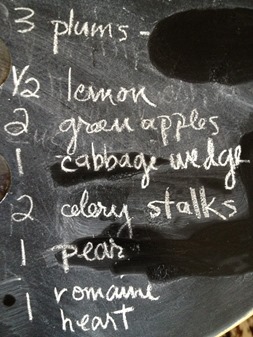 3 plums -
1/2 lemon
2 green apples
1 cabbage wedge
2 celery stalks
1 pear
1 romaine
heart